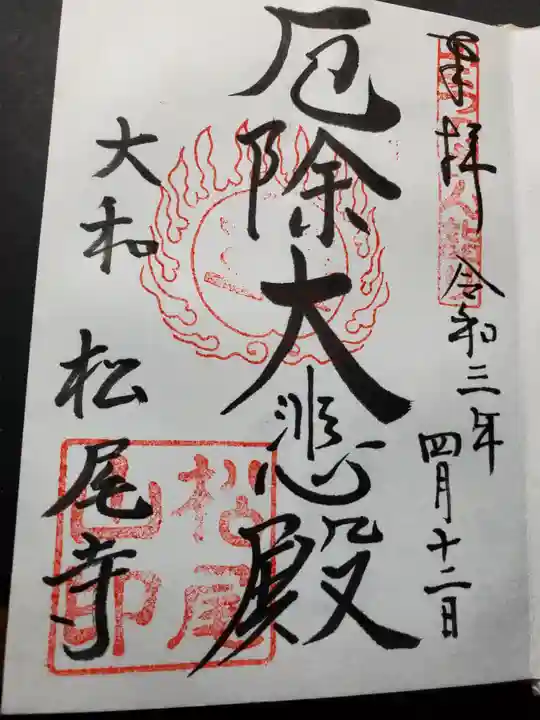 奉拝 令和三年
四月十二日
厄除大悲殿
大和 松尾寺
松尾